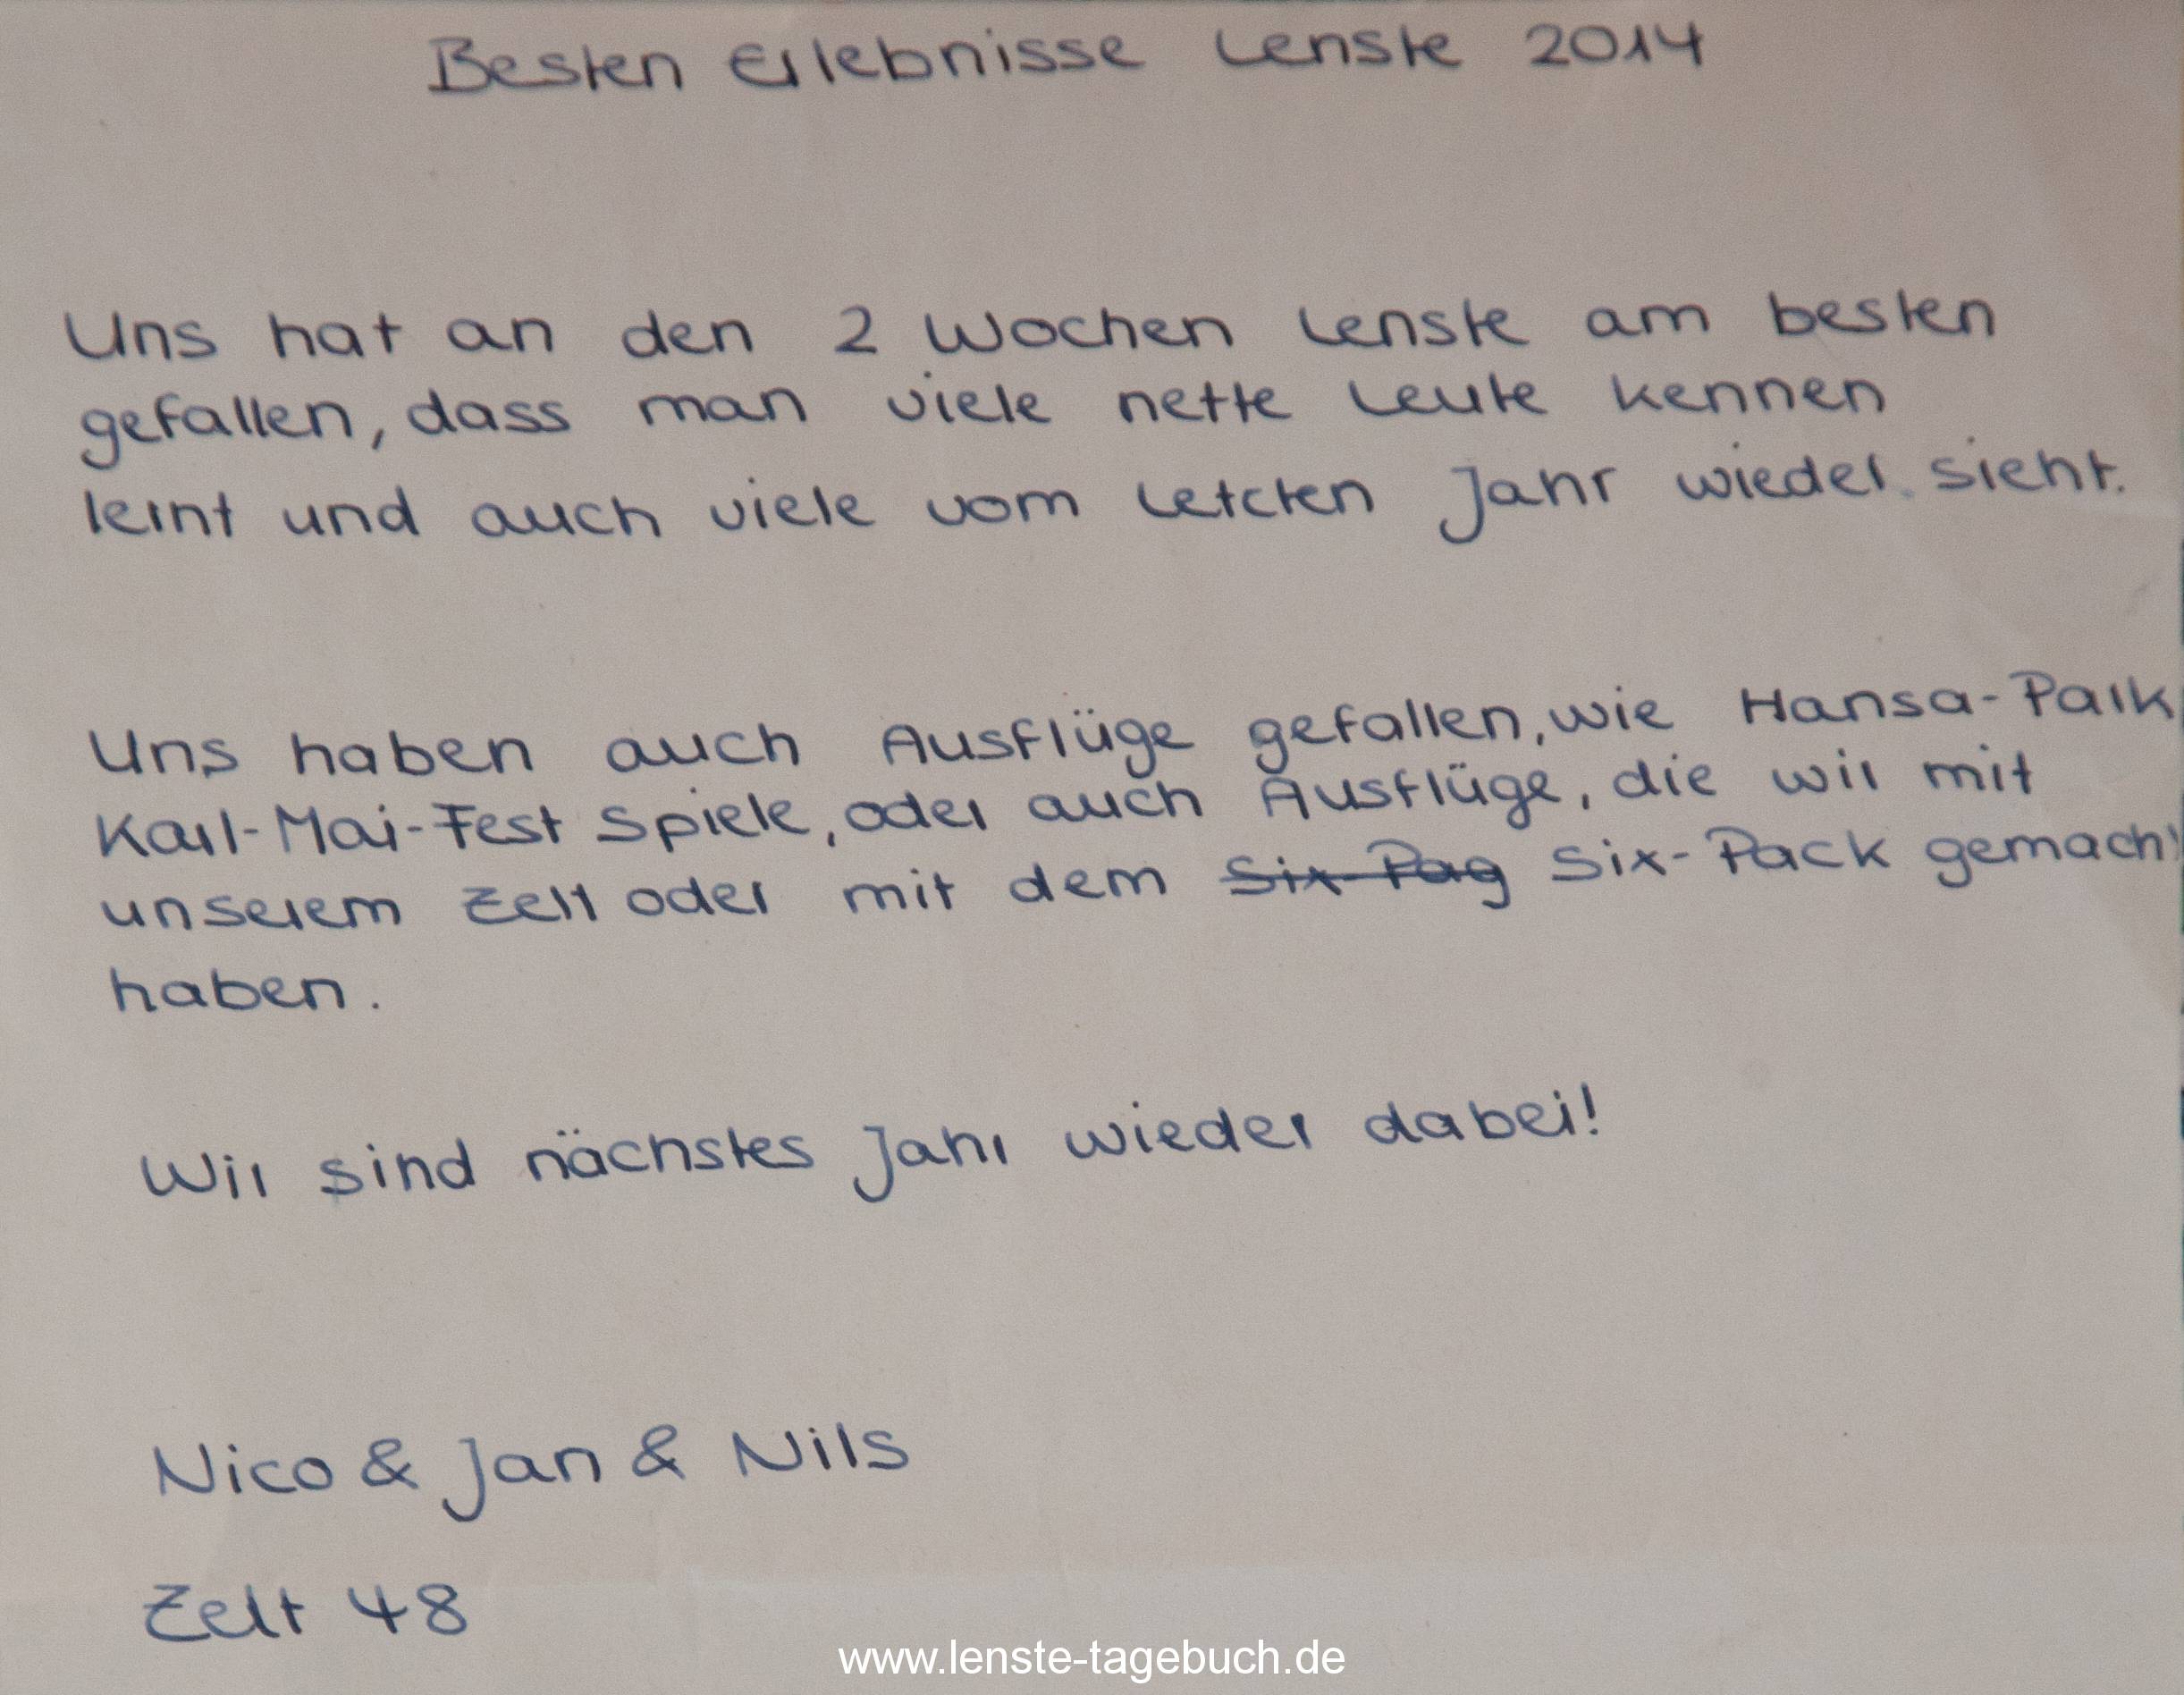 Besten Erlebnisse Lenste 2014
Uns hat an den 2 Wochen Lenste am besten
gefallen, dass man viele nette Leute kennen
lernt und auch viele vom Letzten Jahr wieder sieht.
Uns haben auch Ausflüge gefallen, wie Hansa-Park
Karl-Mai-Fest Spiele, oder auch Ausflüge, die wir mit
unserem Zelt oder mit dem Six-Pag Six-Pack gemacht
haben.
Wir sind nächstes Jahr wieder dabei!
Nico & Jan & Nils
Zelt 48
www.lenste-tagebuch.de